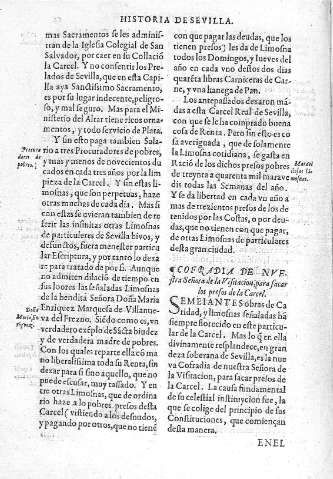 HISTORIA DE SEVILLA.
mas Sacramentos se les adminis-
tran de la Iglesia Colegial de San
Salvador, por caer en su Collació
la Carcel. Y no consentir los Pre-
lados de Sevilla, que en esta Capi-
lla aya Sanctissimo Sacramento,
es por su lugar indecente, peligro-
so, y mal seguro. Mas para el Mi-
nisterio del Altar tiene ricos orna-
mentos, y todo servicio de Plata.
Y sin esto paga tambien Sala-
rio a tres Procuradores de pobres,
y mas y menos de novecientos du-
cados en cada tres años por la lim
pieza de la Carcel. Y sin estas li-
mosnas, que son perpetuas, haze
otras muchas de cada dia. Mas si
con estas se ovieran tambien de re
ferir las infinitas otras Limosnas
de particulares de Sevilla bivos, y
defunctos, fuera menester particu
lar Escriptura, y por tanto lo dexo
para tratado de por si. Aunque
no admiten dilacio de tiempo en
sus loores las señaladas Limosnas
de la bendita Señora Doña Maria
Enriquez Marquesa de Villanue
va del Frezno. Sólo como es, un
verdadero exéplo de Sãcta biudez
y de verdadera madre de pobres.
Con los quales reparte ella có ma
no liberalissima toda su Renta, sin
dexar para si sino aquello, que no
puede escusar, muy tassado. Y en
tre otras Limosnas, que de ordina
rio haze a los pobres presos desta
Carcel (visitando a los desnudos,
y pagando por otros, que no tiené
Procura
dores de
pobres.
con que pagar las deudas, que los
tienen presos) les da de Limosna
todos los Domingos, y Jueves del
año en cada uno destos dos dias
quatro libras Carniceras de Car-
ne, y una hanega de Pan.
Los antepasados dexaron man-
das a esta Carcel Real de Sevilla,
con que se le ha comprado buena
cosa de Renta. Pero sin esto es co
sa averiguada, que de solamente
la Limosna cotidiana, se gasta en
Ració de los dichos presos pobres
de treynta a quarenta mil marave
dis todas las Semanas del año.
Y se da libertad en cada un año a
mas de trezientos presos de los de
tenidos por las Costas, o por deu-
das, que no tienen con que pagar,
de otras Limosnas de particulares
desta gran ciudad.
COFRADIA DE NVE
stra Señora de la Visitacion, para sacar
los presos de la Carcel.
SEMEIANTES obras de Ca
ridad, y limosnas señaladas há
siempre florecido en este particu
lar de la Carcel. Mas lo q̃ en ella
divinamente resplandece, en gran
deza soberana de Sevilla, es la nue
va Cofradia de nuestra Señora de
la Visitacion, para sacar presos de
la Carcel. La causa fundamental
de su celestial instituycion fue, la
que se colige del principio de sus
Constituciones, que comiençan
desta manera.
ENEL